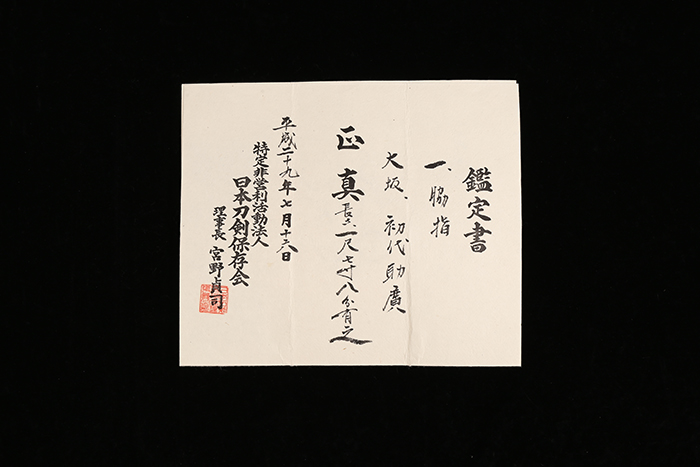 鑑定書
一、脇指
大坂、初代助廣
正真 長サ一尺七寸八分有之
平成二十九年七月十六日
特定非営利活動法人
日本刀剣保存会
理事長 宮野貞司